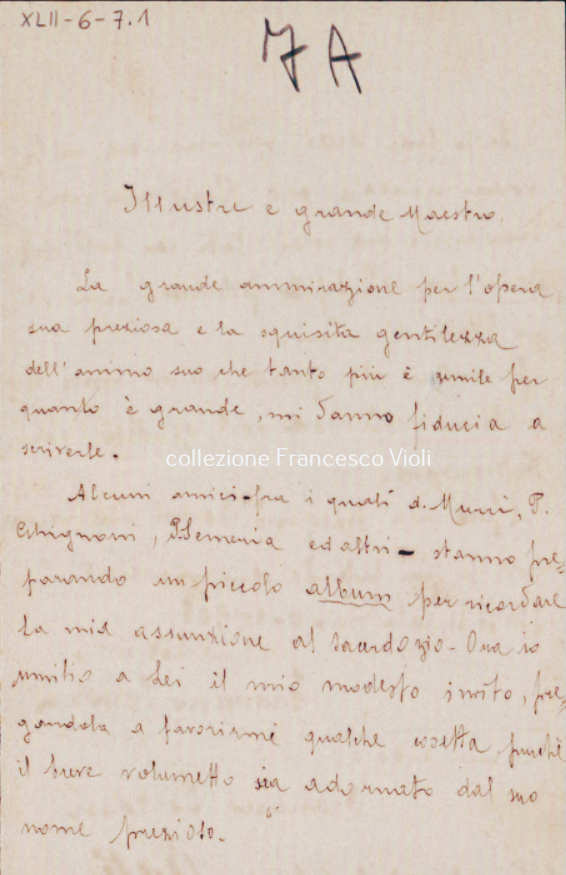 XLII-6-7.1
7 A
Illustre e grande Maestro.
La grande ammirazione per l'opera
sua preziosa e la squisita gentilezza
dell'animo suo che tanto più è umile per
quanto è grande, mi danno fiducia a
scriverle.
collezione Francesco Violi
Alcuni amici - fra i quali d. Murri, P.
Ghignoni, P. Semeria ed altri - stanno pre=
parando un piccolo album per ricordare
la mia assunzione al sacerdozio - Ora io
umilio a Lei il mio modesto invito, pre=
gandola a favorirmi qualche cosetta purchè
il breve volumetto sia adornato dal suo
nome prezioso.